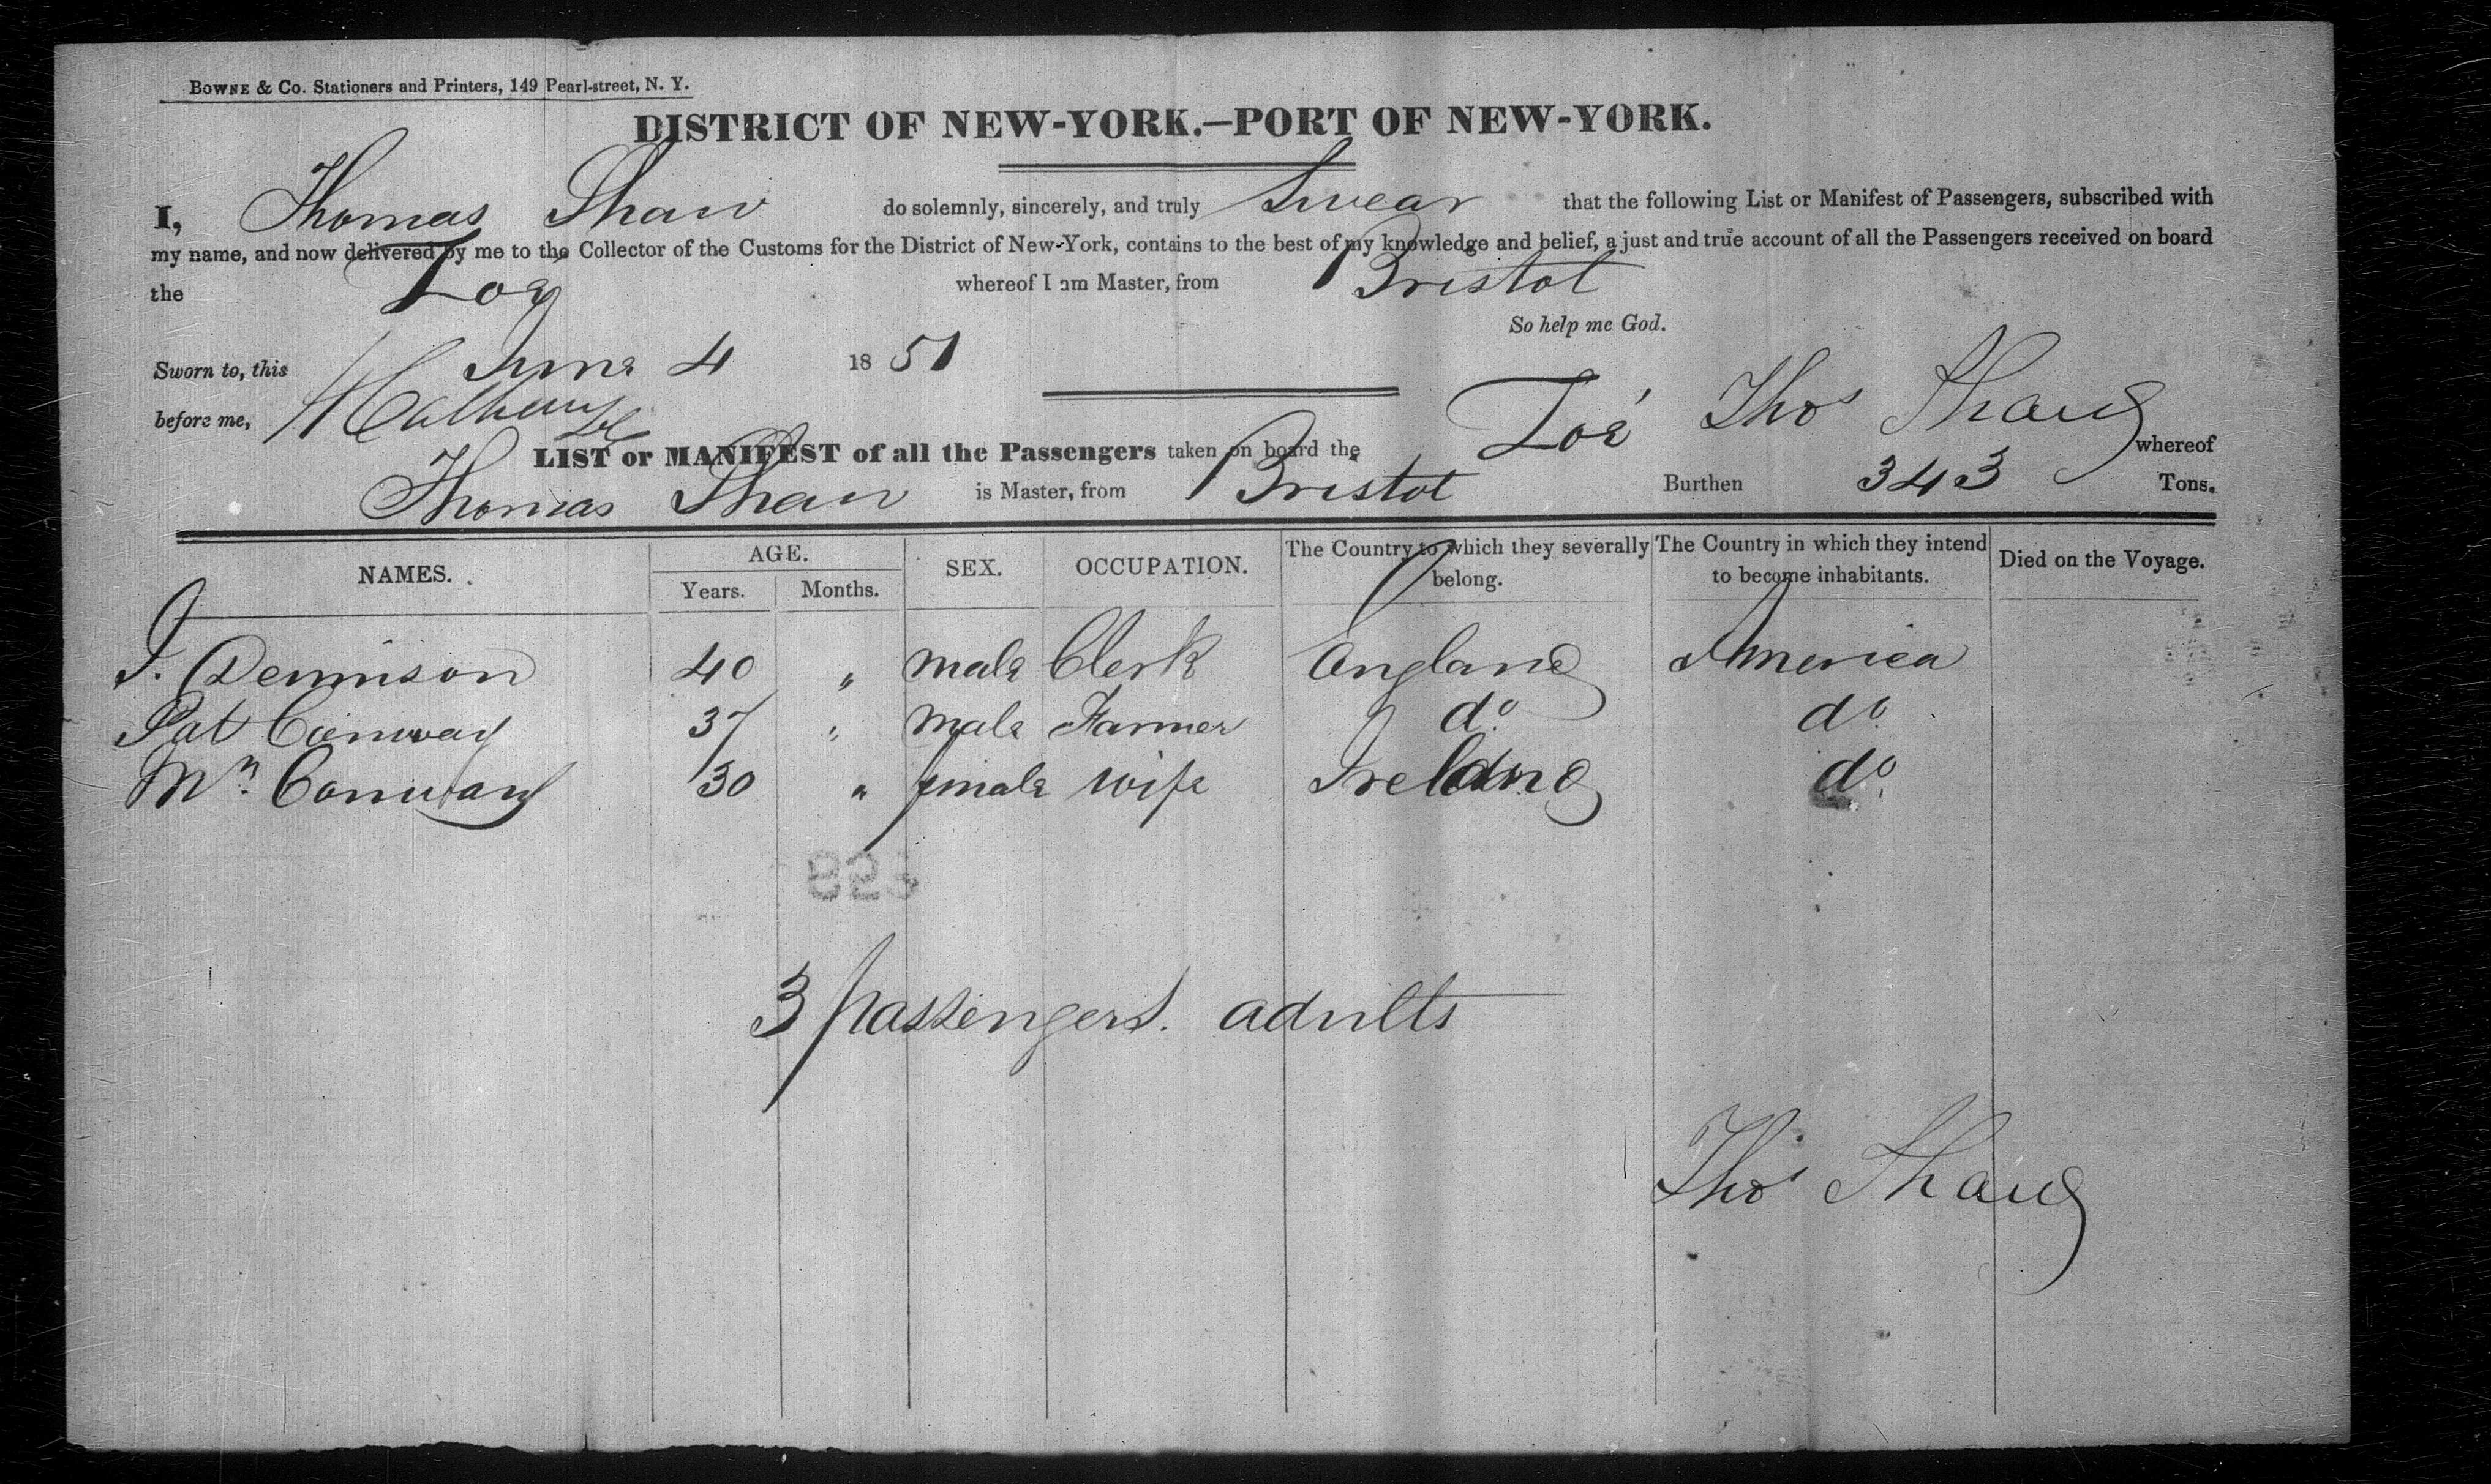 BOWNE & CO. Stationers and Printers, 149 Pearl-street, N. Y.
DISTRICT OF NEW-YORK.—PORT OF NEW-YORK.
I, Thomas Shaw do solemnly, sincerely, and truly Swear that the following List or Manifest of Passengers, subscribed with
my name, and now delivered by me to the Collector of the Customs for the District of New-York, contains to the best of my knowledge and belief, a just and true account of all the Passengers received on board
the Zoe whereof I am Master, from Bristol
So help me God.
Sworn to, this June 4 1851
before me, Thos Shaw
LIST or MANIFEST of all the Passengers taken on board the Zoe whereof
Thomas Shaw is Master, from Bristol Burthen 343 Tons.
NAMES. AGE. Years. Months. SEX. OCCUPATION. The Country to which they severally belong. The Country in which they intend to become inhabitants. Died on the Voyage.
J. Dennison 40 " male Clerk England America
Pat Conway 37 " male Farmer do do
Mrs. Conway 30 " female wife Ireland do
3 passengers. adults
Thos Shaw